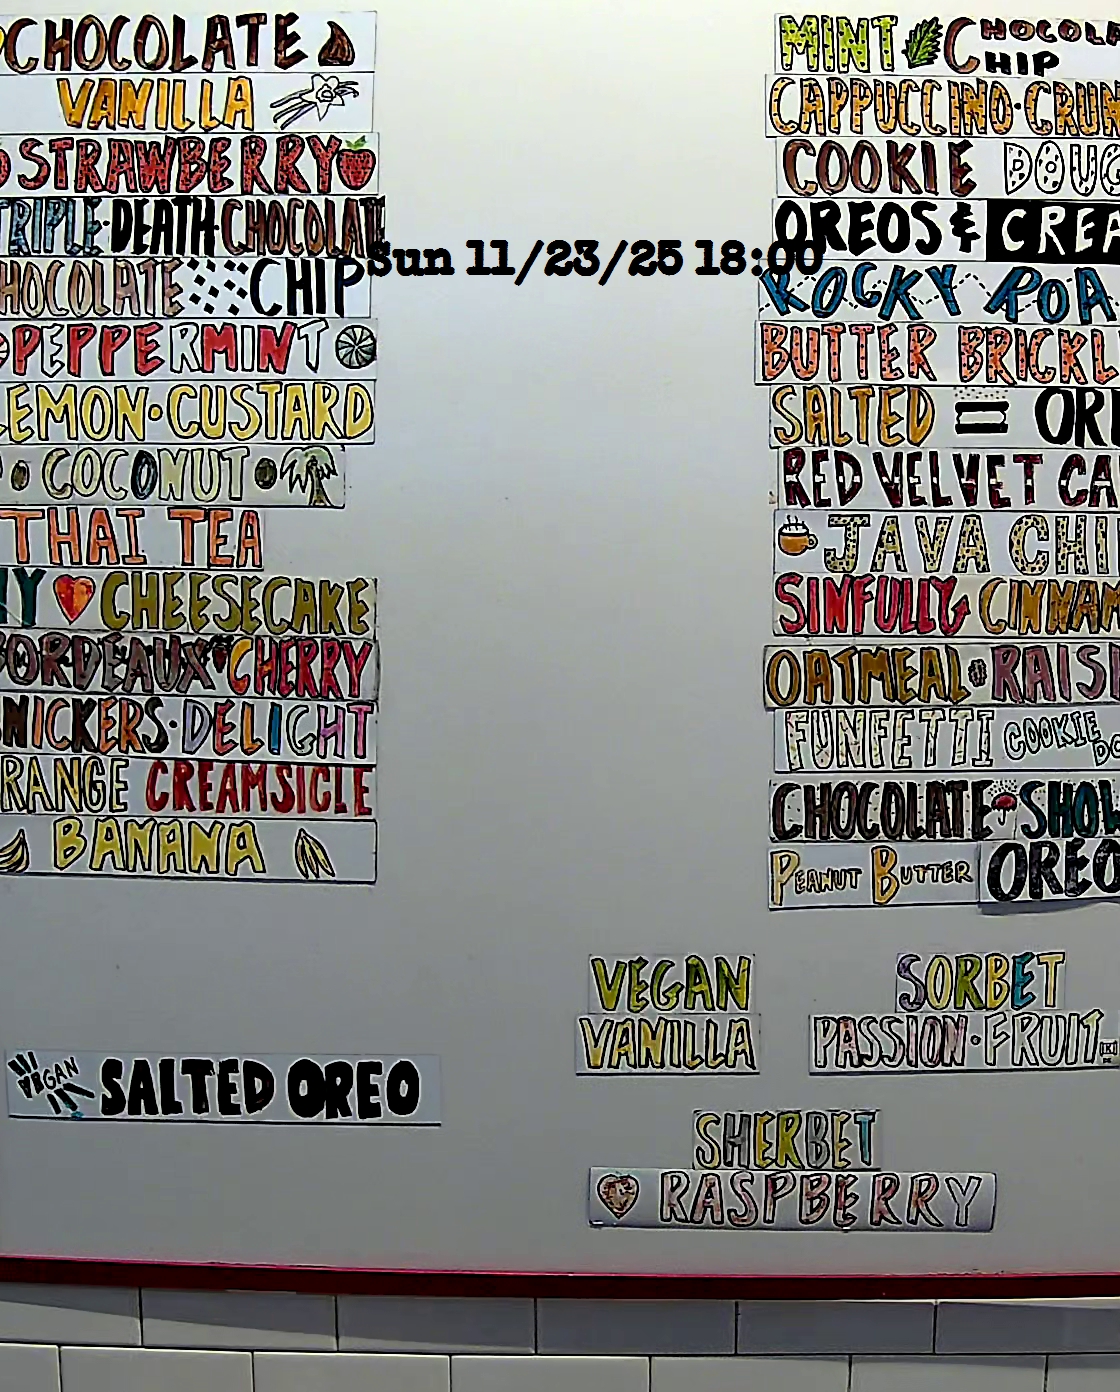 CHOCOLATE
VANILLA
STRAWBERRY
TRIPLE·DEATH·CHOCOLAT
HOCOLATE CHIP
PEPPERMINT
EMON·CUSTARD
COCONUT
THAI TEA
CHEESECAKE
BORDEAUX CHERRY
NICKERS·DELIGHT
RANGE CREAMSICLE
BANANA
Sun 11/23/25 18:00
MINT CHOCOLA
CHIP
CAPPUCCINO·CRUN
COOKIE DOUG
OREOS & CREA
ROCKY ROA
BUTTER BRICKL
SALTED = ORE
RED VELVET CA
JAVA CHI
SINFULLY CINNAM
OATMEAL RAISI
FUNFETTI COOKIE DO
CHOCOLATE SHOW
PEANUT BUTTER OREO
VEGAN
VANILLA
SORBET
PASSION·FRUIT
VEGAN SALTED OREO
SHERBET
RASPBERRY